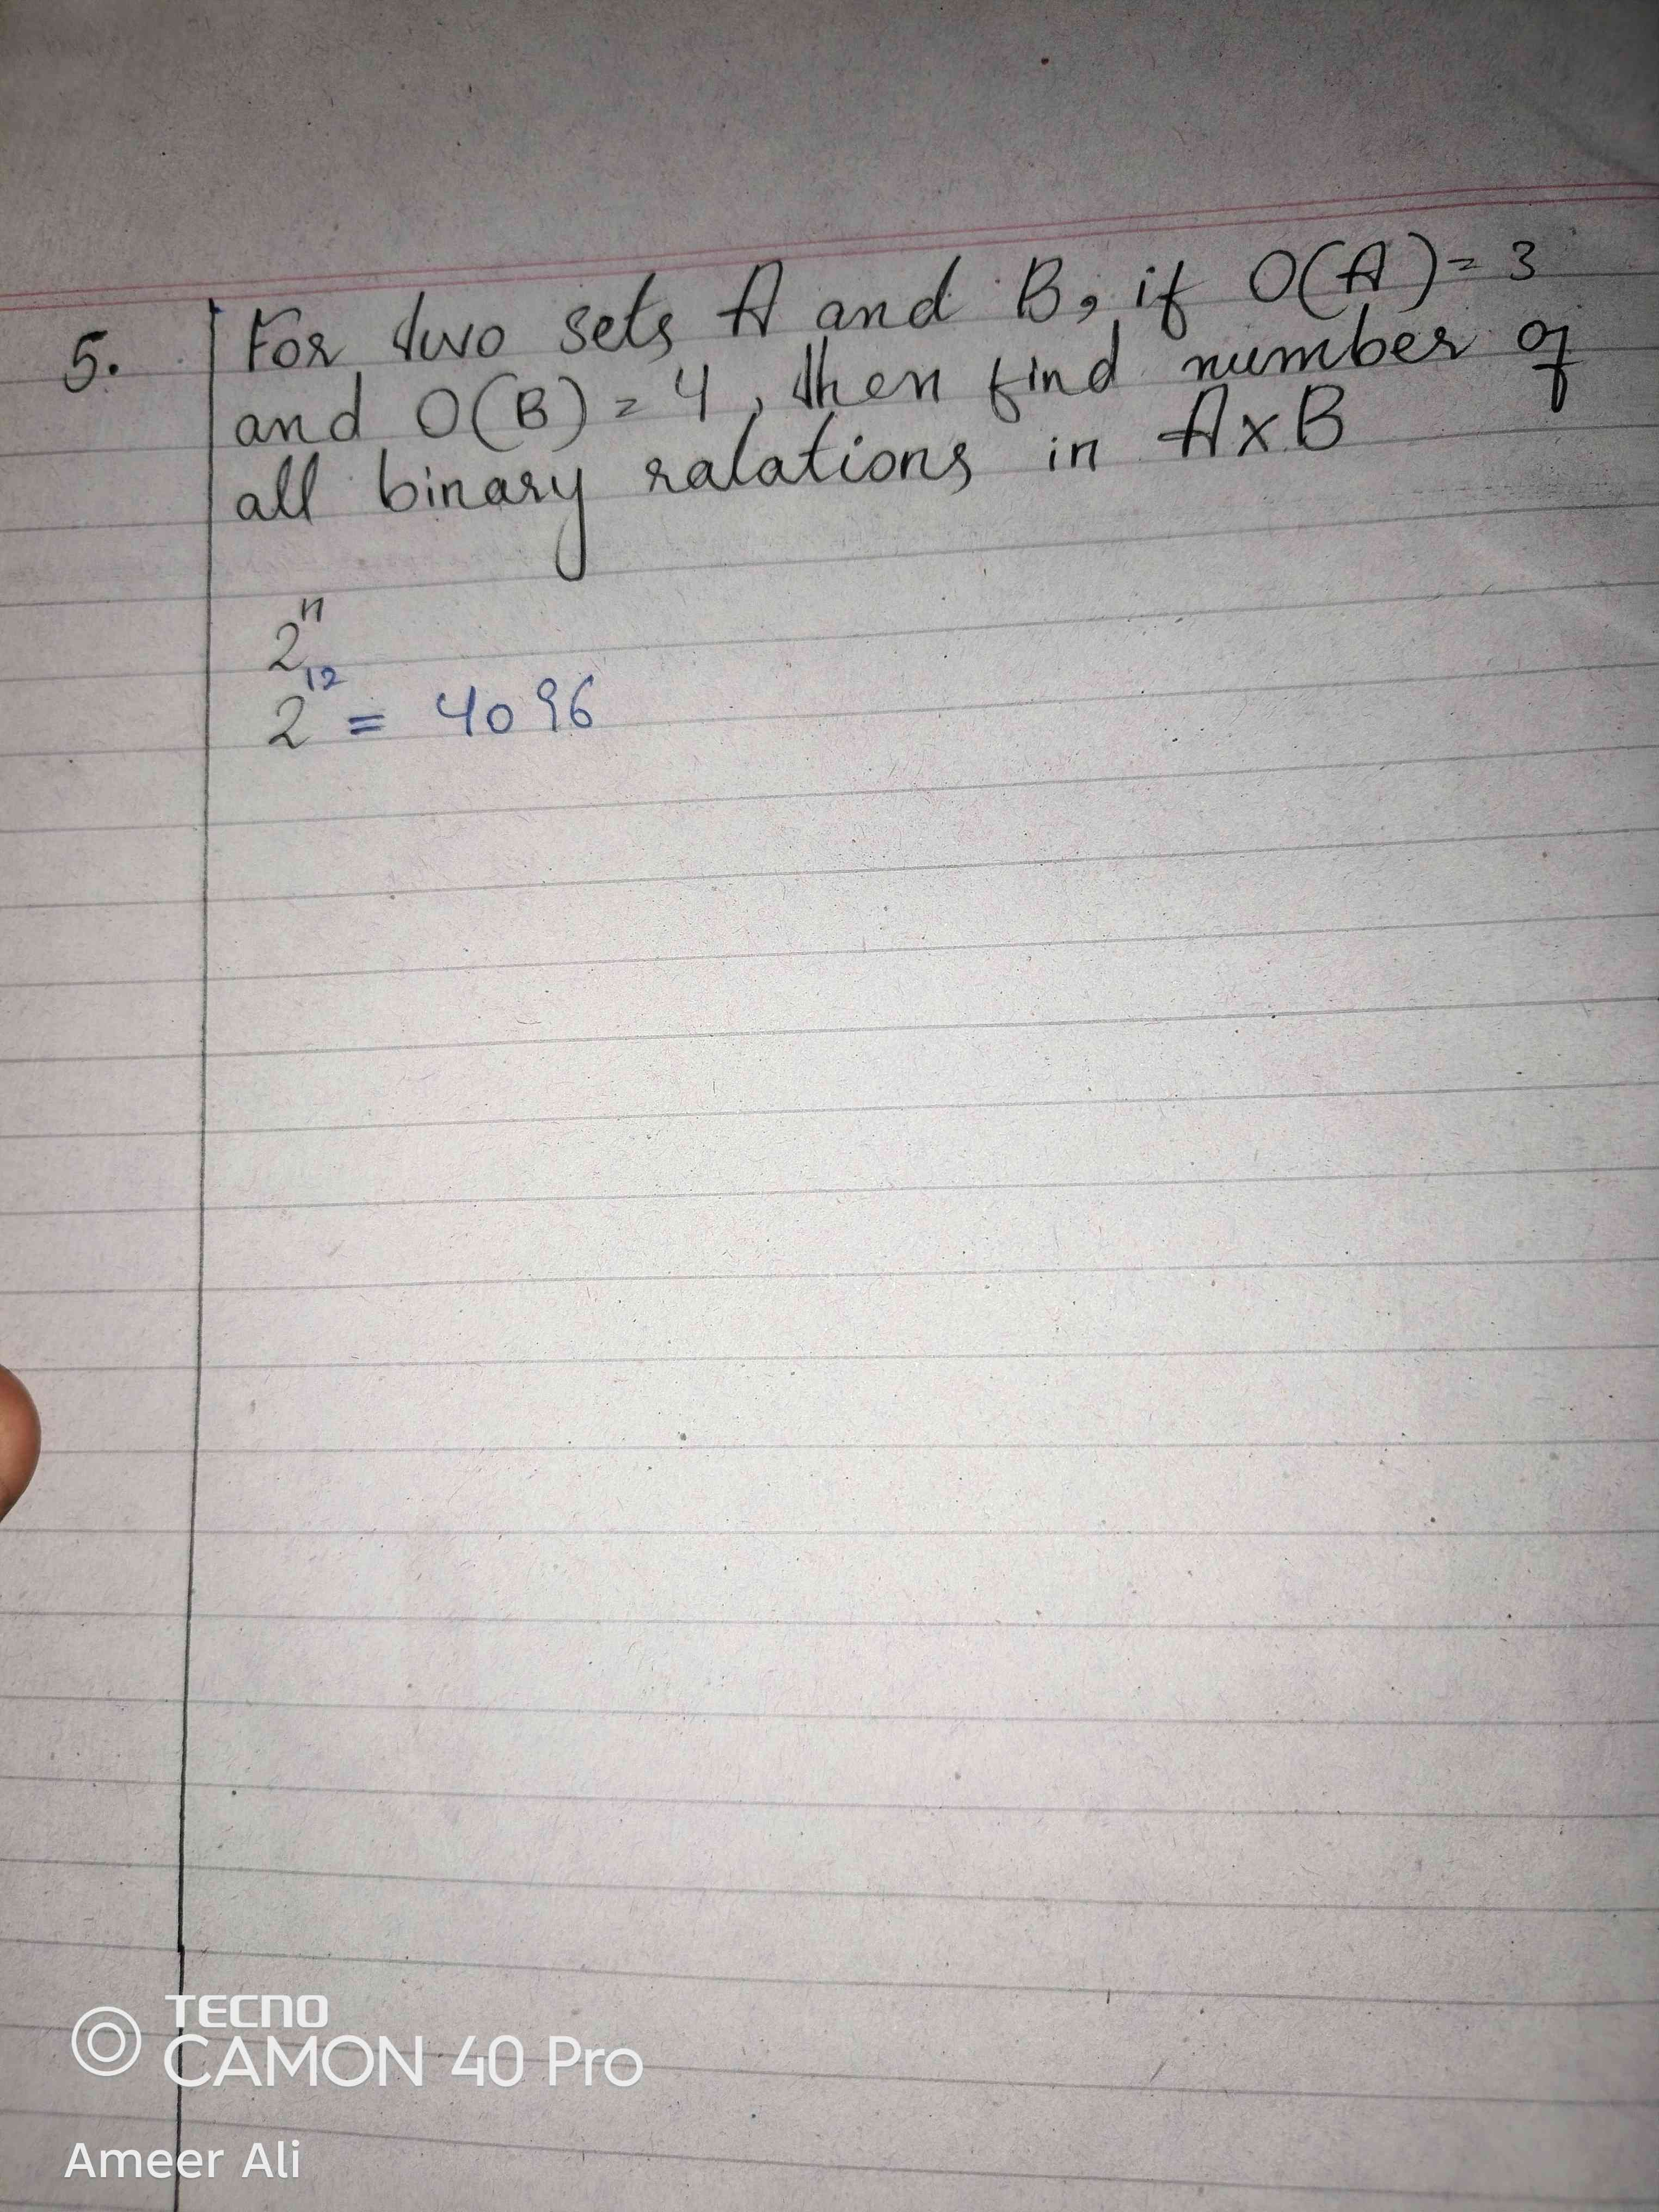 5. For two sets A and B, if O(A) = 3
and O(B) = 4, then find number of
all binary ralations in A×B
2ⁿ
2¹² = 4096
TECNO
CAMON 40 Pro
Ameer Ali